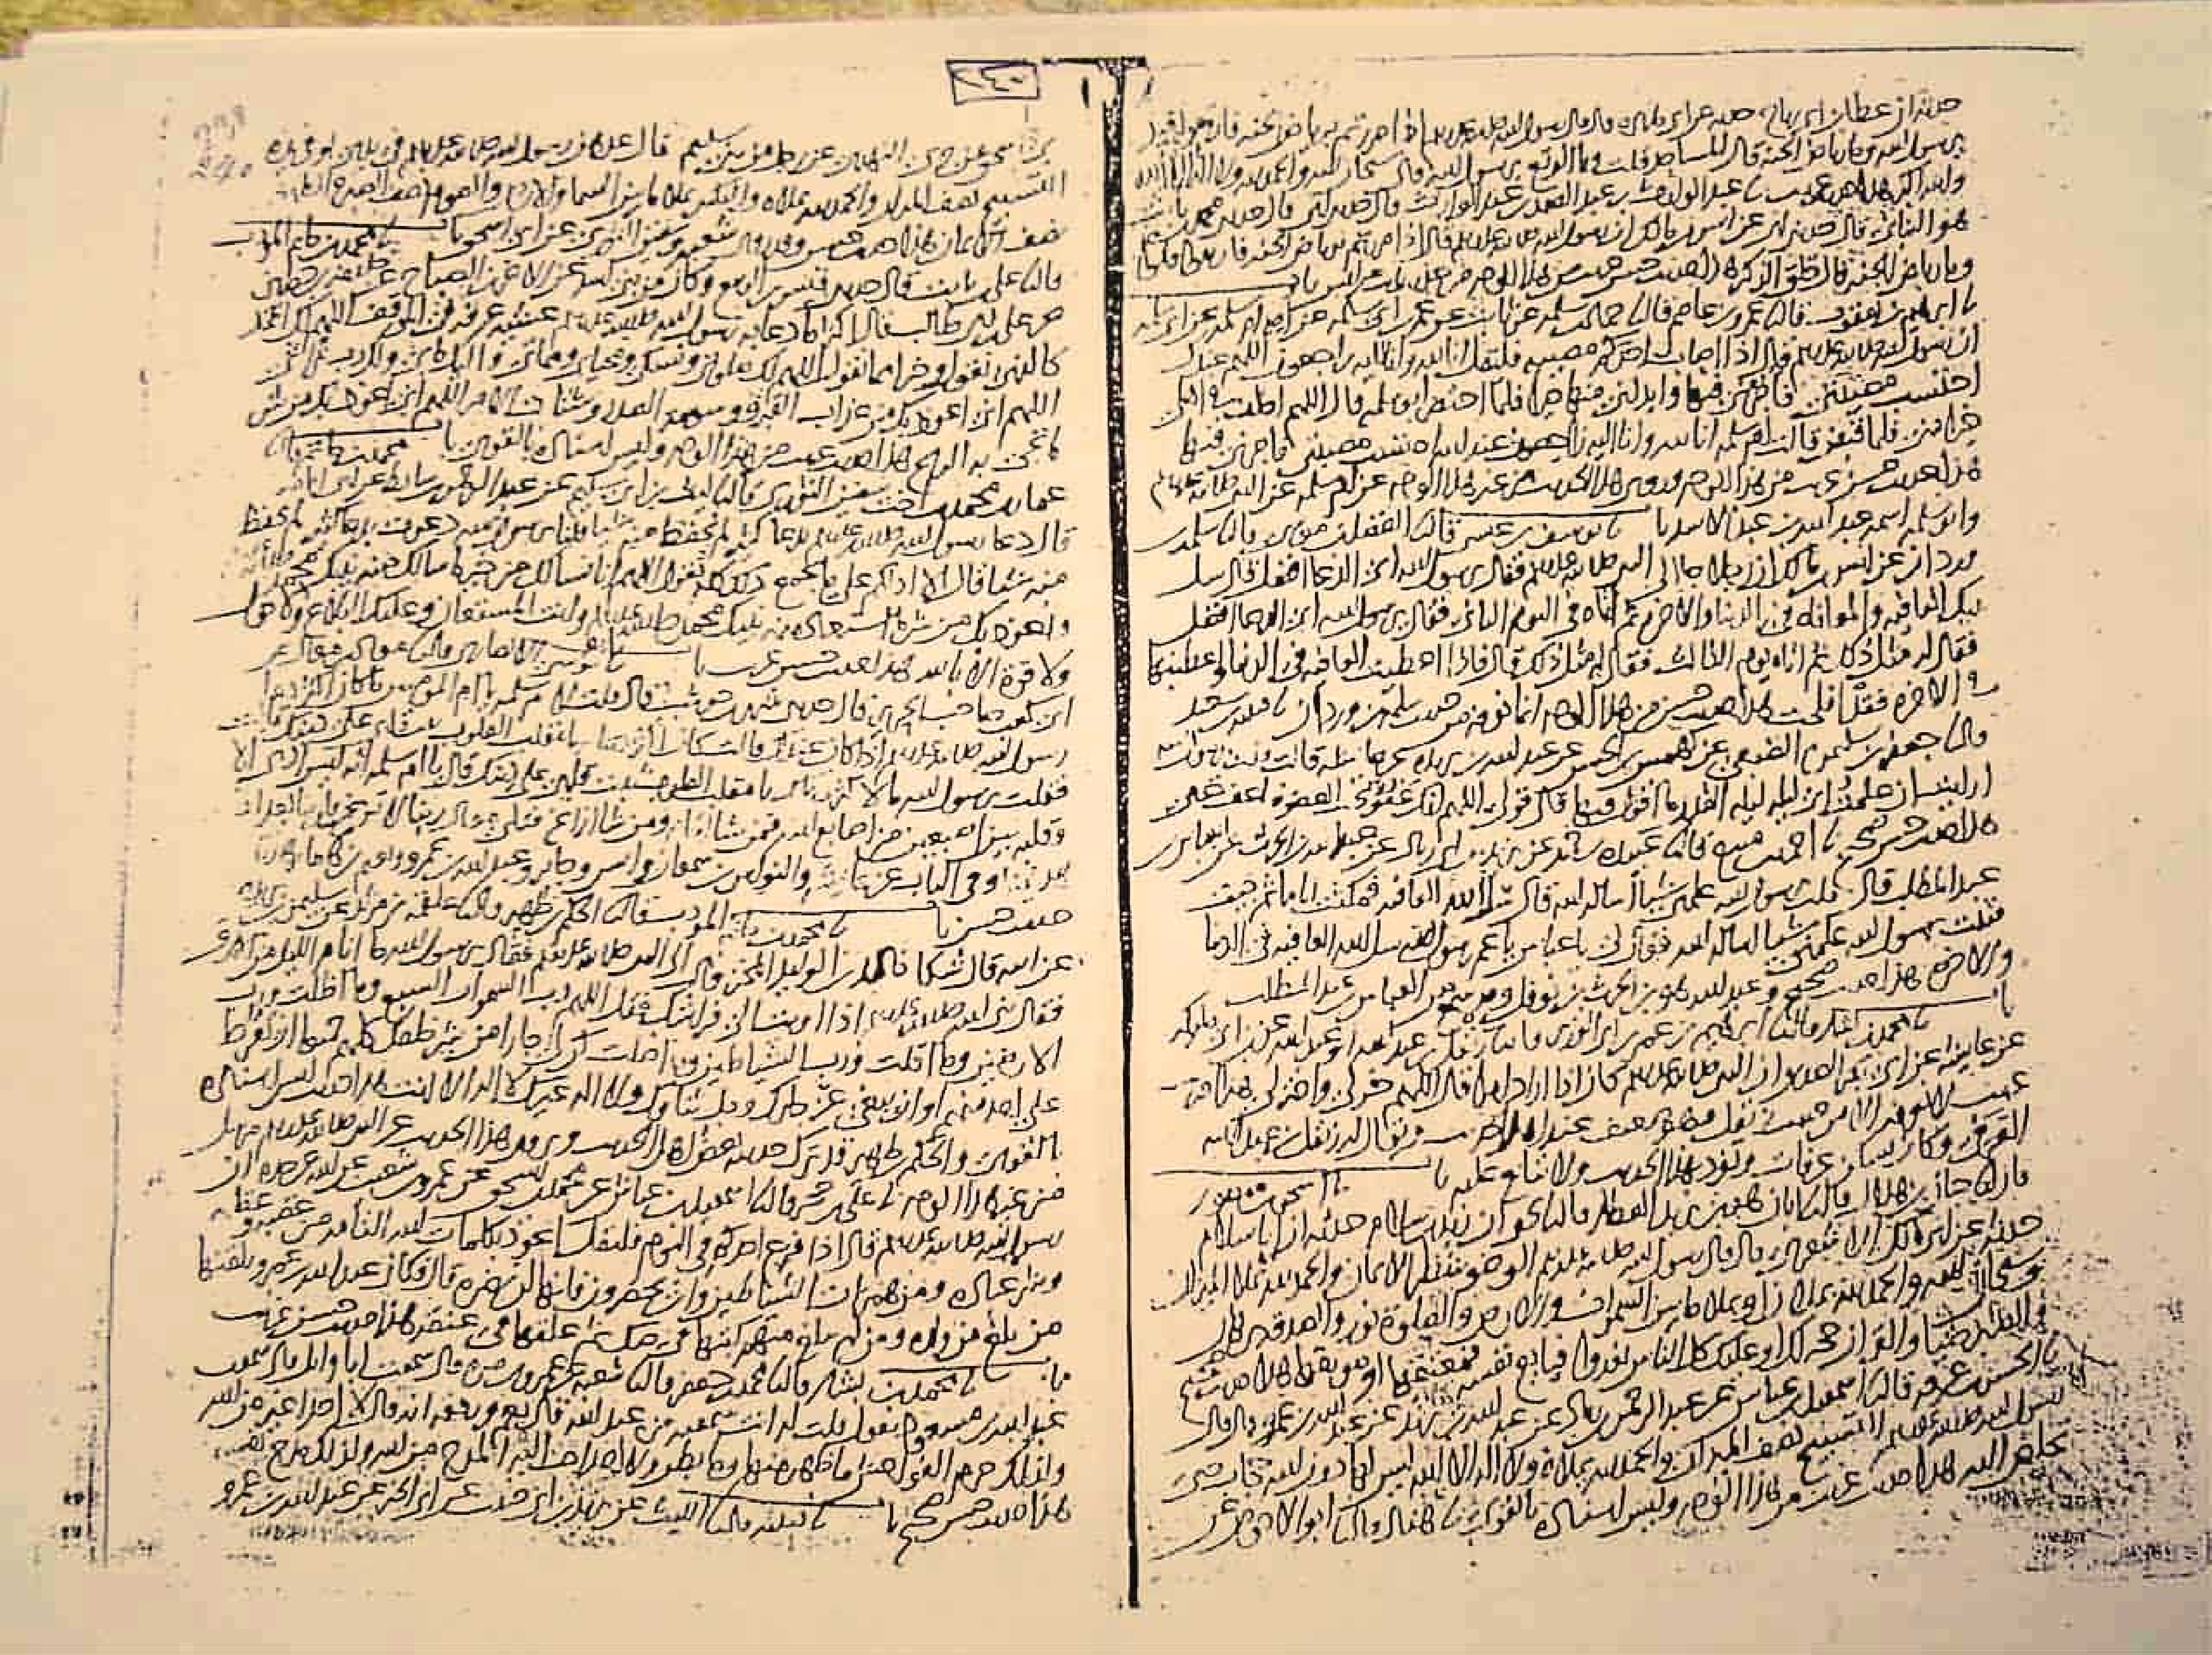 حدثه ان عطاء بن ابي رباح حدثه عن ابي هريرة قال قال رسول الله صلى الله عليه وسلم اذا مررتم برياض الجنة فارتعوا قيل
يرسول الله وما رياض الجنة قال المساجد قلت وما الرتع يرسول الله قال سبحان الله والحمد لله ولا اله الا الله
والله اكبر هذا حديث غريب نا عبد الوارث بن عبد الصمد بن عبد الوارث قال حدثني ابي قال حدثنا محمد بن ثابت
هو البناني قال حدثني ابي عن انس بن مالك ان رسول الله صلى الله عليه وسلم قال اذا مررتم برياض الجنة فارتعوا قالوا
وما رياض الجنة قال حلق الذكر هذا حديث حسن غريب من هذا الوجه من حديث ثابت عن انس باب
نا ابراهيم بن يعقوب قال نا عمرو بن عاصم قال نا حماد بن سلمة عن ثابت عن عمر بن ابي سلمة عن امه ام سلمة عن ابي سلمة
ان رسول الله صلى الله عليه وسلم قال اذا اصاب احدكم مصيبة فليقل انا لله وانا اليه راجعون اللهم عندك
احتسبت مصيبتي فاجرني فيها وابدلني منها خيرا فلما احتضر ابو سلمة قال اللهم اخلف في اهلي
خيرا مني فلما قبض قالت ام سلمة انا لله وانا اليه راجعون عند الله احتسبت مصيبتي فاجرني فيها
هذا حديث حسن غريب من هذا الوجه وروي هذا الحديث من غير هذا الوجه عن ام سلمة عن النبي صلى الله عليه وسلم
وابو سلمة اسمه عبد الله بن عبد الاسد باب نا يوسف بن عيسى قال نا الفضل بن موسى قال نا سلمة بن
وردان عن انس بن مالك ان رجلا جا الى النبي صلى الله عليه وسلم فقال يرسول الله اي الدعا افضل قال سل
ربك العافية والمعافاة في الدنيا والاخرة ثم اتاه في اليوم الثاني فقال يرسول الله اي الدعا افضل
فقال له مثل ذلك ثم اتاه يوم الثالث فقال له مثل ذلك قال فاذا اعطيت العافية في الدنيا واعطيتها
في الاخرة فقد افلحت هذا حديث حسن من هذا الوجه انما نعرفه من حديث سلمة بن وردان نا قتيبة بن سعيد
قال نا جعفر بن سليمن الضبعي عن كهمس بن الحسن عن عبد الله بن بريدة عن عائشة قالت قلت يرسول الله
ارايت ان علمت اي ليلة ليلة القدر ما اقول فيها قال قولي اللهم انك عفو تحب العفو فاعف عني
هذا حديث حسن صحيح نا احمد بن منيع قال نا عبيدة بن حميد عن يزيد بن ابي زياد عن عبد الله بن الحرث عن العباس بن
عبد المطلب قال قلت يرسول الله علمني شيا اساله الله قال سل الله العافية فمكثت اياما ثم جيت
فقلت يرسول الله علمني شيا اساله الله فقال لي يا عباس يا عم رسول الله سل الله العافية في الدنيا
والاخرة هذا حديث صحيح وعبد الله هو بن الحرث بن نوفل وقد سمع من العباس بن عبد المطلب
باب نا محمد بن بشار قال نا ابراهيم بن عمر بن ابي الوزير قال نا زنفل بن عبد الله ابو عبد الله عن ابن ابي مليكة
عن عايشة عن ابي بكر الصديق ان النبي صلى الله عليه وسلم كان اذا اراد امرا قال اللهم خر لي واختر لي هذا حديث
غريب لا نعرفه الا من حديث زنفل وهو ضعيف عند اهل الحديث ويقال له زنفل بن عبد الله
العرفي وكان يسكن عرفات وتفرد بهذا الحديث ولا يتابع عليه باب نا اسحق بن منصور
قال نا حبان بن هلال قال نا ابان هو بن يزيد العطار قال نا يحيى ان زيد بن سلام حدثه ان ابا سلام
حدثه عن ابي مالك الاشعري قال قال رسول الله صلى الله عليه وسلم الوضو شطر الايمان والحمد لله تملا الميزان
وسبحان الله والحمد لله تملان او تملا ما بين السموات والارض والصلوة نور والصدقة برهان
والصبر ضيا والقران حجة لك او عليك كل الناس يغدوا فبايع نفسه فمعتقها او موبقها هذا حديث صحيح
نا الحسن بن عرفة قال نا اسمعيل بن عياش عن عبد الرحمن بن زياد عن عبد الله بن يزيد عن عبد الله بن عمرو قال قال
رسول الله صلى الله عليه وسلم التسبيح نصف الميزان والحمد لله يملاه ولا اله الا الله ليس لها دون الله حجاب حتى
تخلص اليه هذا حديث غريب من هذا الوجه وليس اسناده بالقوي نا هناد قال نا ابو الاحوص عن
التسبيح نصف الميزان والحمد لله يملاه والتكبير يملا ما بين السما والارض والصوم نصف الصبر والطهور
نصف الايمان هذا حديث حسن وقد رواه شعبة وسفين الثوري عن ابي اسحق باب نا محمد بن حاتم المودب
قال نا علي بن ثابت قال حدثني قيس بن الربيع وكان من بني اسد عن الاغر بن الصباح عن خليفة بن حصين
عن علي بن ابي طالب قال اكثر ما دعا به رسول الله صلى الله عليه وسلم عشية عرفة في الموقف اللهم لك الحمد
كالذي نقول وخيرا مما نقول اللهم لك صلاتي ونسكي ومحياي ومماتي واليك مابي ولك رب تراثي
اللهم اني اعوذ بك من عذاب القبر ووسوسة الصدر وشتات الامر اللهم اني اعوذ بك من شر
ما تجي به الريح هذا حديث غريب من هذا الوجه وليس اسناده بالقوي باب نا محمد بن حاتم قال نا
عمار بن محمد بن اخت سفين الثوري قال نا ليث بن ابي سليم عن عبد الرحمن بن سابط عن ابي امامة
قال دعا رسول الله صلى الله عليه وسلم بدعا كثير لم نحفظ منه شيا قلنا يرسول الله دعوت بدعا كثير لم نحفظ
منه شيا قال الا ادلكم على ما يجمع ذلك كله تقول اللهم انا نسالك من خير ما سالك منه نبيك محمد
واعوذ بك من شر ما استعاذ منه نبيك محمد صلى الله عليه وسلم وانت المستعان وعليك البلاغ ولا حول
ولا قوة الا بالله هذا حديث حسن غريب باب نا ابو موسى الانصاري قال نا معاذ بن معاذ عن
ابي كعب صاحب الحرير قال حدثني شهر بن حوشب قال قلت لام سلمة يا ام المومنين ما كان اكثر دعا
رسول الله صلى الله عليه وسلم اذا كان عندك قالت كان اكثر دعايه يا مقلب القلوب ثبت قلبي على دينك قالت
فقلت يرسول الله ما لاكثر دعاك يا مقلب القلوب ثبت قلبي على دينك قال يا ام سلمة انه ليس ادمي الا
وقلبه بين اصبعين من اصابع الله فمن شا اقام ومن شا ازاغ فتلى معاذ ربنا لا تزغ قلوبنا بعد اذ
هديتنا وفي الباب عن عايشة والنواس بن سمعان وانس وجابر وعبد الله بن عمرو ونعيم بن همار وهذا
حديث حسن باب نا محمد بن حاتم المودب قال نا الحكم بن ظهير قال نا علقمة بن مرثد عن سليمن بن بريدة
عن ابيه قال شكا خالد بن الوليد المخزومي الى النبي صلى الله عليه وسلم فقال يرسول الله ما انام الليل من الارق
فقال نبي الله صلى الله عليه وسلم اذا اويت الى فراشك فقل اللهم رب السموات السبع وما اظلت ورب
الارضين وما اقلت ورب الشياطين وما اضلت كن لي جارا من شر خلقك كلهم جميعا ان يفرط
علي احد منهم او ان يبغي عز جارك وجل ثناوك ولا اله غيرك لا اله الا انت هذا حديث ليس اسناده
بالقوي والحكم بن ظهير قد ترك حديثه بعض اهل الحديث ويروى هذا الحديث عن النبي صلى الله عليه وسلم مرسل
من غير هذا الوجه نا علي بن حجر قال نا اسمعيل بن عياش عن محمد بن اسحق عن عمرو بن شعيب عن ابيه عن جده ان
رسول الله صلى الله عليه وسلم قال اذا فزع احدكم في النوم فليقل اعوذ بكلمات الله التامة من غضبه وعقابه
وشر عباده ومن همزات الشياطين وان يحضرون فانها لن تضره قال وكان عبد الله بن عمرو يلقنها
من بلغ من ولده ومن لم يبلغ منهم كتبها في صك ثم علقها في عنقه هذا حديث حسن غريب
باب نا محمد بن بشار قال نا محمد بن جعفر قال نا شعبة عن عمرو بن مرة قال سمعت ابا وايل قال سمعت
عبد الله بن مسعود يقول قلت له انت سمعته من عبد الله قال نعم ورفعه انه قال لا احد اغير من الله
ولذلك حرم الفواحش ما ظهر منها وما بطن ولا احد احب اليه المدح من الله ولذلك مدح نفسه
هذا حديث حسن صحيح باب نا قتيبة قال نا الليث عن يزيد بن ابي حبيب عن ابي الخير عن عبد الله بن عمرو